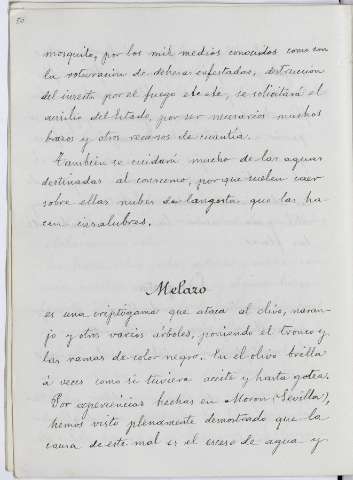 50
mosquito, por los mil medios conocidos como son
la roturación de dehesas infestadas, destruccion
del insecto por el fuego etc etc, se solicitará el
auxilio del Estado, por ser necesarios muchos
brazos y otros recursos de cuantía.
Tambien se cuidará mucho de las aguas
destinadas al consumo, porque suelen caer
sobre ellas nubes de langosta que las ha-
cen insalubres.
Melazo
es una criptógama que ataca al olivo, naran-
jo y otros varios árboles, poniendo el tronco y
las ramas de color negro. En el olivo brilla
á veces como si tuviera aceite y hasta gotea.
Por experiencias hechas en Moron (Sevilla),
hemos visto plenamente demostrado que la
causa de este mal es el exceso de agua y